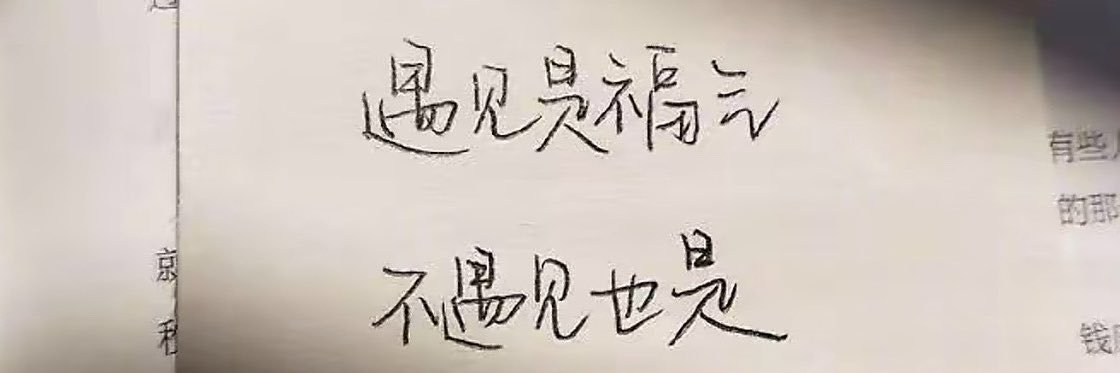 遇见是福气
不遇见也是
有些
的那
钱